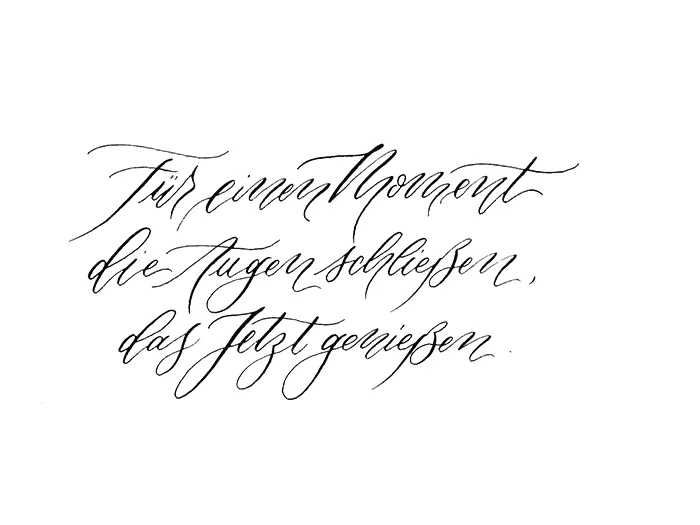 Für einen Moment
die Augen schließen,
das Jetzt genießen.